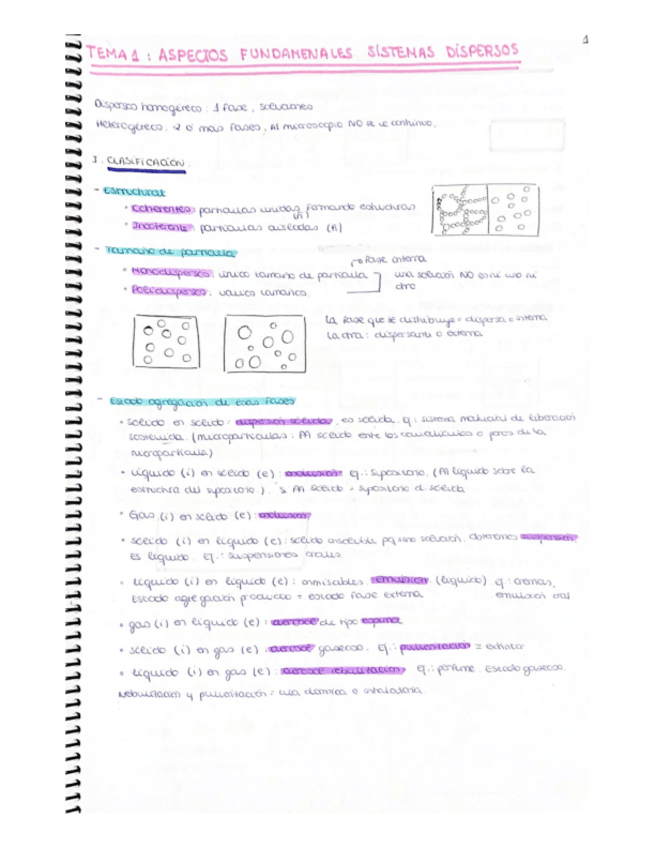 1
TEMA 1: ASPECTOS FUNDAMENALES SISTEMAS DISPERSOS
Dispersos homogéneo: 1 fase, soluciones
Heterogéneo: 2 o más fases, Al microscopio NO se ve continuo.
I. CLASIFICACIÓN.
- Estructural
• Coherentes: partículas unidas formando estructuras
• Incoherente: partículas aisladas (fi)
- Tamaño de partícula
→ Fase interna
• Monodispersos: único tamaño de partícula
una solución NO es ni uno ni
• Polidispersos: varios tamaños.
otro
La fase que se distribuye = dispersa o interna
La otra: dispersante o externa
- Estado agregación de esas fases
• Sólido en sólido: dispersión sólida, es sólida. ej: sistema matricial de liberación
sostenida. (micropartículas: PA sólido entre los o poros de la
micropartícula)
• Líquido (i) en sólido (e): ej.: Supositorio. (PA líquido sobre la
estructura del supositorio). Si PA sólido = supositorio d. sólida
• Gas (i) en sólido (e):
• sólido (i) en líquido (e): sólido insoluble pq sino solución, obtenemos suspensión,
es líquido. ej.: suspensiones orales.
• líquido (i) en líquido (e): inmiscibles, emulsión (líquido) ej: cremas,
Estado agregación producto = estado fase externa
emulsión oral
• gas (i) en líquido (e): aerosol de tipo espuma
• sólido (i) en gas (e): aerosol gaseoso. ej.: pulverización = inhalador
• líquido (i) en gas (e): aerosol nebulización ej.: perfume. Estado gaseoso.
Nebulización y pulverización: vía dérmica e inhalatoria.